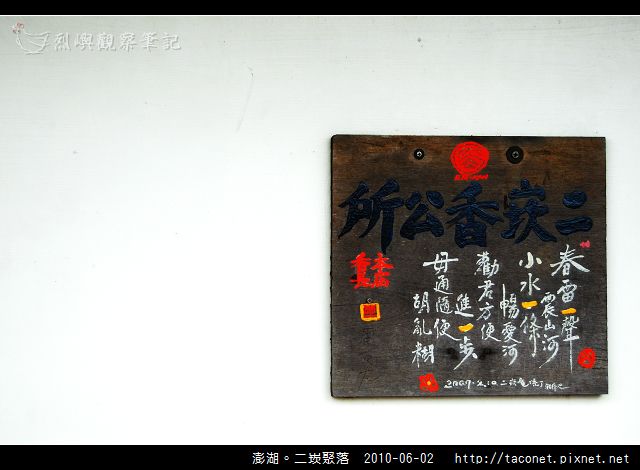 烈嶼觀察筆記
二崁香公所
春雷一聲
震山河
小水一條
暢愛河
勸君方便
進一步
毋通隨便
胡亂糊
澎湖。二崁聚落 2010-06-02 http://taconet.pixnet.net